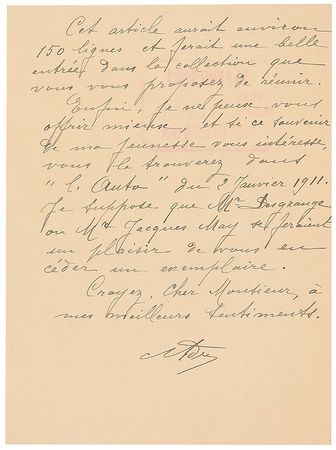 Cet article aurait environ
150 lignes et ferait une belle
entrée dans la collection que
vous vous proposez de réunir.
Enfin, je ne peux vous
offrir mieux, et si ce souvenir
de ma jeunesse vous intéresse,
vous le trouverez dans
"L'Auto" du 2 Janvier 1911.
Je suppose que Mr Desgrange
ou Mr Jacques May se feraient
un plaisir de vous en
céder un exemplaire.
Croyez, cher Monsieur, à
mes meilleurs sentiments.